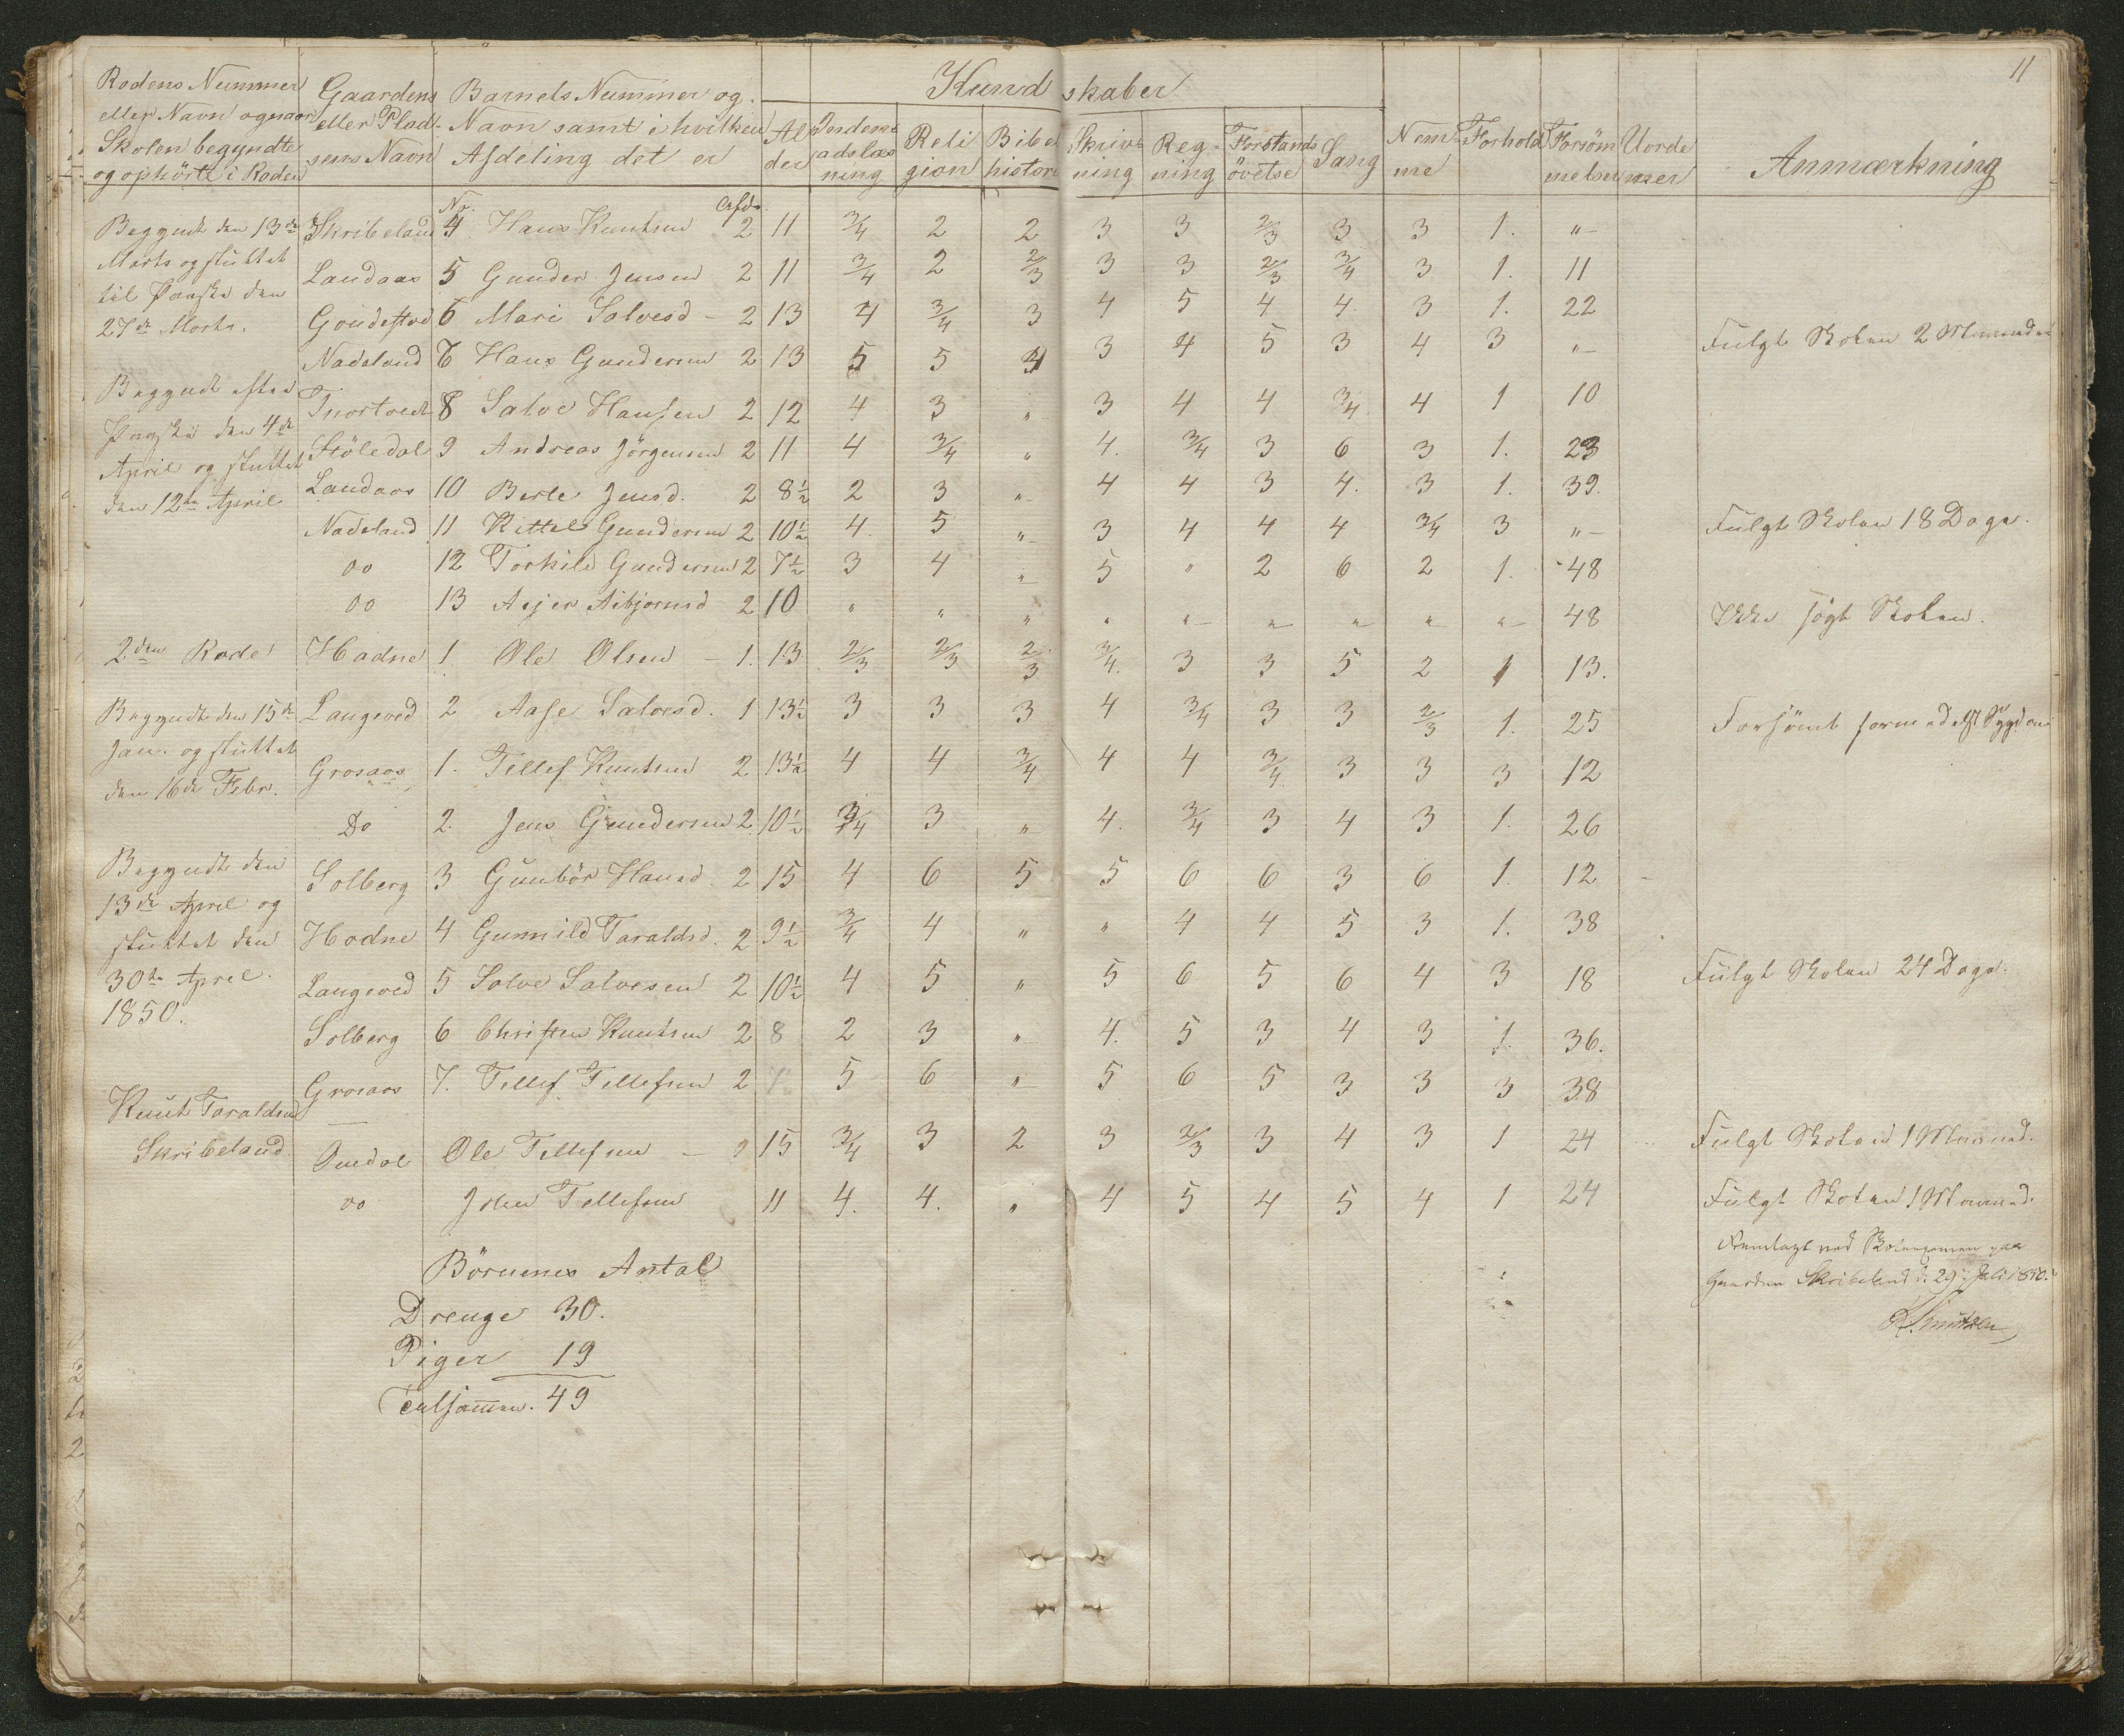 11
Kundskaber
Rodens Nummer Gaardens Barnets Nummer og
eller Navn og naar eller Plad- Navn samt i hvilken Al Indenads Reli Bibel Skriv- Reg- Forstands Sang Nem- Forhold Forsöm Uorde Anmærkning
Skolen begyndte sens Navn Afdeling det er der læsning gion histori ning ning övelse me melser ner
og ophörte i Roden
No. Afd.
Begyndt den 13de Skribeland 4 Hans Knutsen 2 11 3/4 2 2 3 3 2/3 3 3 1. "
Marts og sluttet Landaas 5 Gunder Jensen 2 11 3/4 2 2/3 3 3 2/3 3/4 3 1. 11
til Paaske den
27de Marts. 6 Mari Salvesd - 2 13 4 3/4 3 4 5 4 4. 3 1. 22
Nadeland Hans Gundersen 2 13 5 5 3 4 5 3 4 3 " Fulgt Skolen 2 Maaneder
Begyndt efter 8 Salve Hansen 2 12 4 3 " 3 4 4 3/4 4 1 10
Paaske den 4de Stöledal 9 Andreas Jörgensen 2 11 4 3/4 " 4. 3/4 3 6 3 1. 23
April og sluttet Landaas 10 Berte Jensd. 2 8½ 2 3 " 4 4 3 4. 3 1. 39.
den 12te April
Nadeland 11 Kittel Gundersen 2 10½ 4. 5 " 3 4 4 4 3/4 3 " Fulgt Skolen 18 Dage.
do 12 Torkild Gundersen 2 7½ 3 4 " 5 " 2 6 2 1. 48
do 13 2 10 " " " " " " " " " 48 Ikke sögt Skolen.
2den Rode Hodne 1 Ole Olsen - 1. 13 2/3 2/3 2/3 3/4. 3 3 5 2 1 13.
Begyndt den 15de Langeved 2 Aase Salvesd. 1 13½ 3 3 3 4 3/4 3 3 2/3 1. 25 Forsömt formedelst Sygdom
Jan. og sluttet Grosaas 1. Tellef Knutsen 2 13½ 4 4 3/4 4 4 3/4 3 3 3 12
den 16de Febr.
Do 2. Jens Gundersen 2 10½ 3/4 3 " 4. 3/4 3 4 3 1. 26
Begyndt den Solberg 3 Gunbör Hansd. 2 15 4 6 5 5 6 6 3 6 1. 12
13de April og
sluttet den Hodne 4 Gunnild Taraldsd. 2 9½ 3/4 4 " " 4 4 5 3 1. 38
30te April. Langeved 5 Salve Salvesen 2 10½ 4 5 " 5 6 5 6 4 3 18 Fulgt Skolen 24 Dage.
1850. Solberg 6 Christen Knutsen 2 8 2 3 " 4. 5 3 4 3 1. 36.
Grosaas 7. Tellef Tellefsen 2 7 5 6 " 5 6 5 3 3 3 38
Knut Taraldsen
Skribeland Omdal Ole Tellefsen - 2 15 3/4 3 2 3 2/3 3 4 3 1 24 Fulgt Skolen 1 Maaned.
do John Tellefsen 11 4. 4. " 4 5 4 5 4 1 24 Fulgt Skolen 1 Maaned.
Fremlagt ved Skoleexamen paa
Gaarden Skribeland d. 29 Juli 1850.
Börnenes Antal
Drenge 30.
Piger 19
Tilsammen. 49